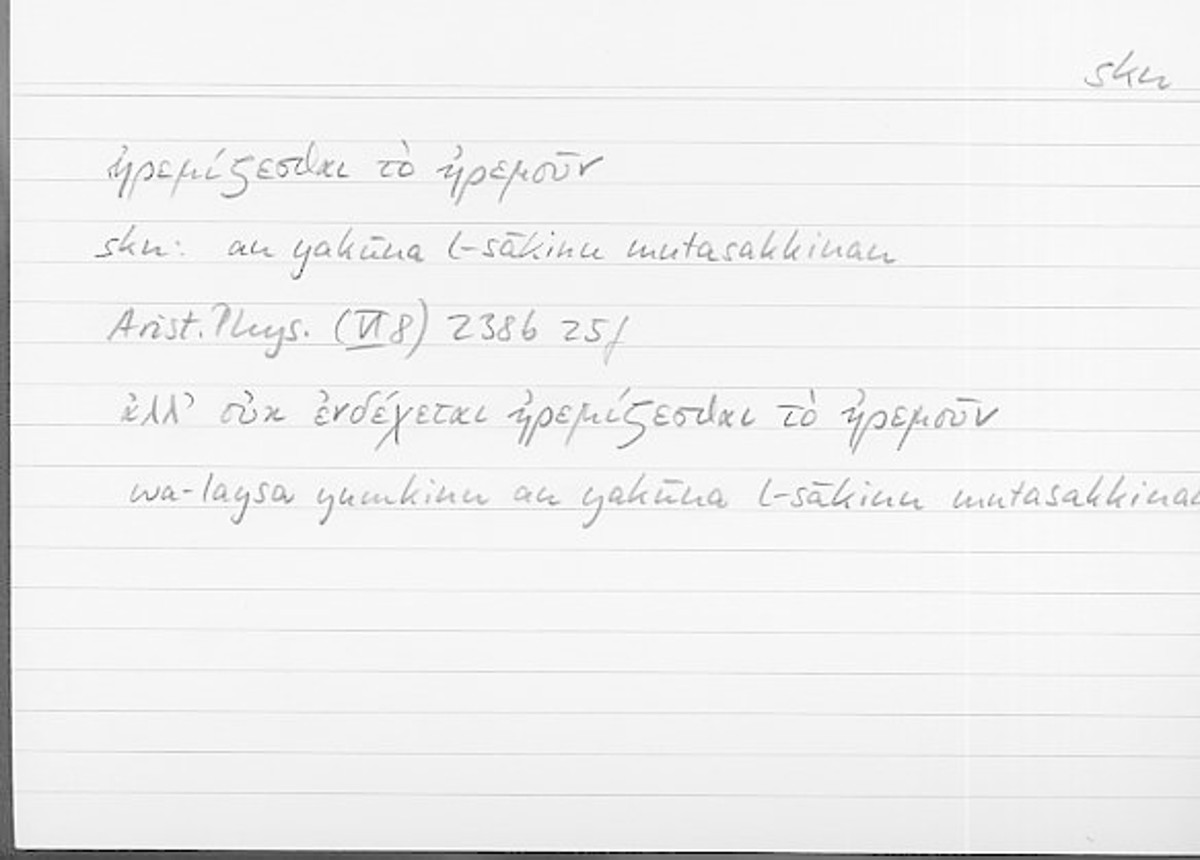 skn
ἠρεμίζεσθαι τὸ ἠρεμοῦν
skn: an yakūna l-sākinu mutasakkinan
Arist. Phys. (VI 8) 238b 25f
ἀλλ' οὐκ ἐνδέχεται ἠρεμίζεσθαι τὸ ἠρεμοῦν
wa-laysa yumkinu an yakūna l-sākinu mutasakkinan